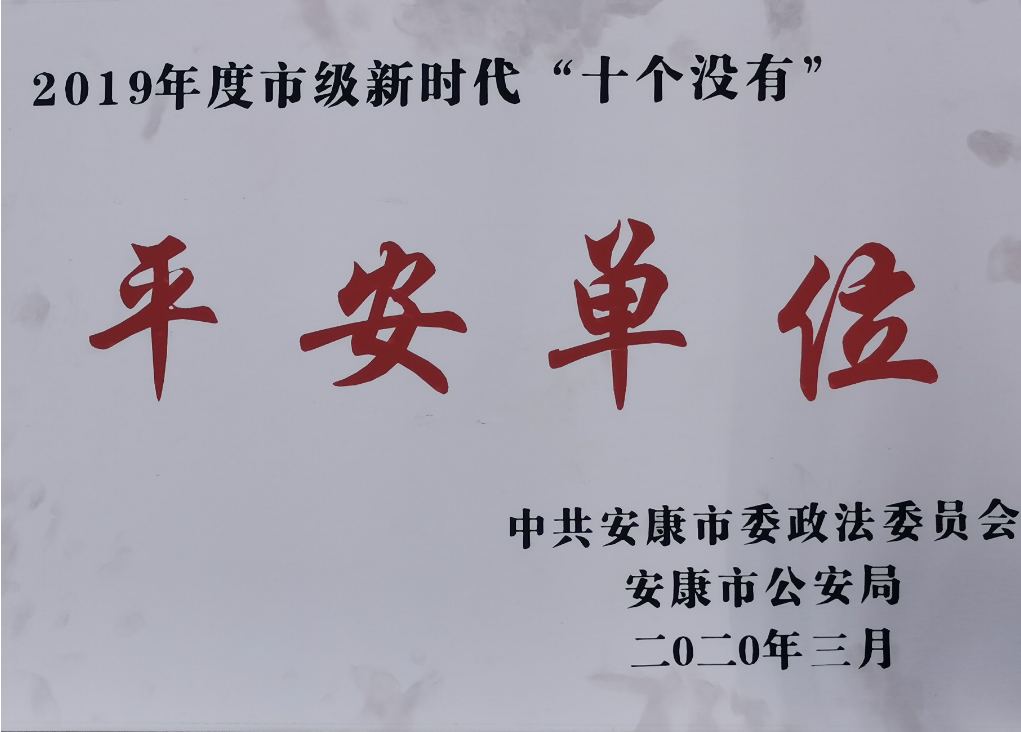 2019年度市级新时代“十个没有”
平安单位
中共安康市委政法委员会
安康市公安局
二0二0年三月